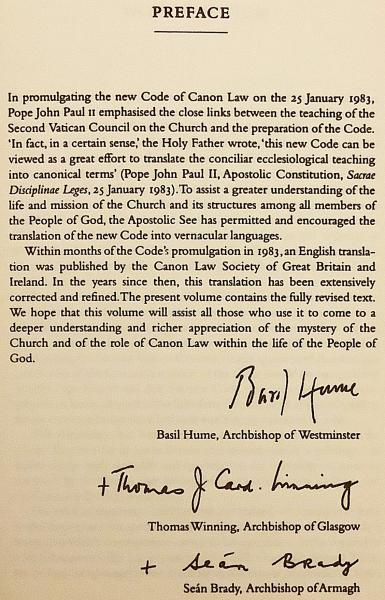 PREFACE
In promulgating the new Code of Canon Law on the 25 January 1983,
Pope John Paul II emphasised the close links between the teaching of the
Second Vatican Council on the Church and the preparation of the Code.
'In fact, in a certain sense,' the Holy Father wrote, 'this new Code can be
viewed as a great effort to translate the conciliar ecclesiological teaching
into canonical terms' (Pope John Paul II, Apostolic Constitution, Sacrae
Disciplinae Leges, 25 January 1983). To assist a greater understanding of the
life and mission of the Church and its structures among all members of
the People of God, the Apostolic See has permitted and encouraged the
translation of the new Code into vernacular languages.
Within months of the Code's promulgation in 1983, an English transla-
tion was published by the Canon Law Society of Great Britain and
Ireland. In the years since then, this translation has been extensively
corrected and refined. The present volume contains the fully revised text.
We hope that this volume will assist all those who use it to come to a
deeper understanding and richer appreciation of the mystery of the
Church and of the role of Canon Law within the life of the People of
God.
Basil Hume
Basil Hume, Archbishop of Westminster
+ Thomas J Card. Winning
Thomas Winning, Archbishop of Glasgow
+ Seán Brady
Seán Brady, Archbishop of Armagh